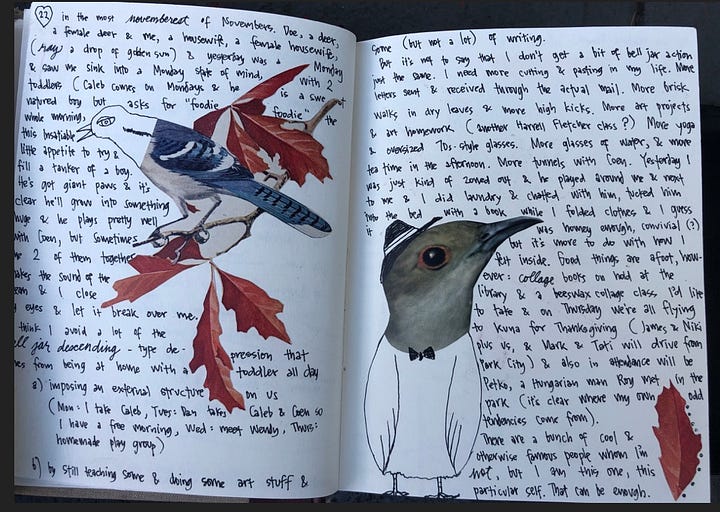 22
in the most novemberest of Novembers. Doe, a deer,
a female deer & me, a housewife, a female housewife,
(ray a drop of golden sun) & yesterday was a Monday
& saw me sink into a Monday state of mind, with 2
toddlers (Caleb comes on Mondays & he is a sweet
natured boy but asks for "foodie foodie" the
whole morning,
this insatiable
little appetite to try &
fill a tanker of a boy.
He's got giant paws & it's
clear he'll grow into something
huge & he plays pretty well
with Coen, but sometimes
the 2 of them together
makes the sound of the
& I close
my eyes & let it break over me.
I think I avoid a lot of the
bell jar descending - type de-
pression that
comes from being at home with a toddler all day
a) imposing an external structure on us
(Mon: I take Caleb, Tues: Dan takes Caleb & Coen so
I have a free morning, Wed: meet Wendy, Thurs:
homemade play group)
b) by still teaching some & doing some art stuff &
some (but not a lot) of writing.
But it's not to say that I don't get a bit of bell jar action
just the same. I need more cutting & pasting in my life. More
letters sent & received through the actual mail. More brisk
walks in dry leaves & more high kicks. More art projects
& art homework (another Harrell Fletcher class?) More yoga
& oversized 70s-style glasses. More glasses of water, & more
tea time in the afternoon. More tunnels with Coen. Yesterday I
was just kind of zoned out & he played around me & next
to me & I did laundry & chatted with him, tucked him
into the bed with a book while I folded clothes & I guess
it was homey enough, convivial (?)
but it's more to do with how I
felt inside. Good things are afoot, how-
ever: collage books on hold at the
library & a beeswax collage class I'd like
to take & on Thursday we're all flying
to Kuna for Thanksgiving (James & Niki
plus us, & Mark & Tati will drive from
Park City) & also in attendance will be
Petko, a Hungarian man Roy met in the
park (it's clear where my own odd
tendencies come from).
There are a bunch of cool &
otherwise famous people whom I'm
not, but I am this one, this
particular self. That can be enough.